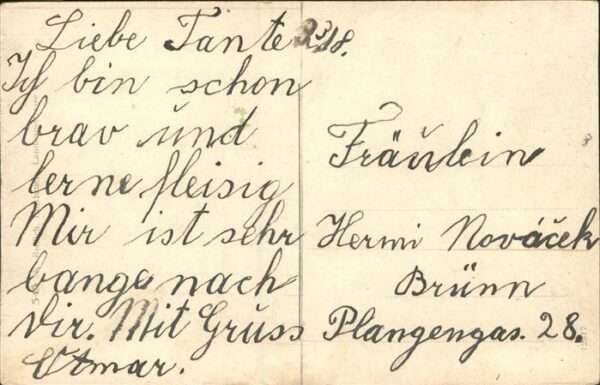 Liebe Tante
Ich bin schon
brav und
lerne fleisig
Mir ist sehr
bange nach
dir. Mit Gruss
Otmar.
Fräulein
Hermi Nováček
Brünn
Plangengas. 28.